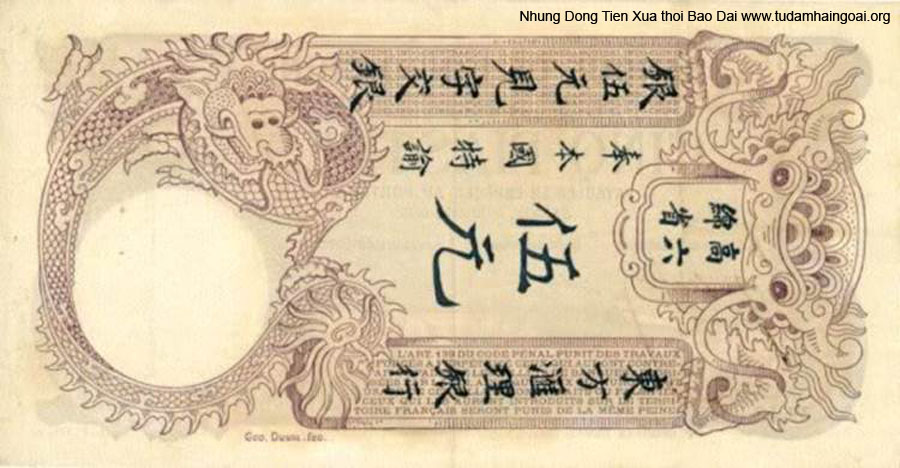 Nhung Dong Tien Xua thoi Bao Dai www.tudamhaingoai.org
高綿
六省
東方滙理銀行
伍元
奉本國特諭
銀伍元見字交銀
L'ART. 139 DU CODE PENAL PUNIT DES TRAVAUX
TOIRE FRANÇAIS SERONT PUNIS DE LA MÊME PEINE